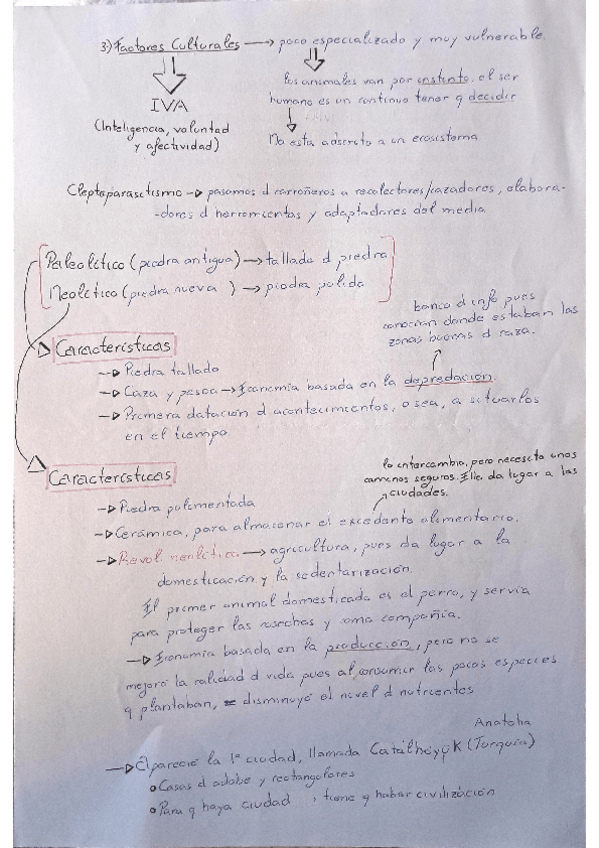 3) Factores Culturales → poco especializado y muy vulnerable.
IVA
(Inteligencia, voluntad
y afectividad)
los animales van por instinto, el ser
humano es un continuo tener q decidir
No esta adscrato a un ecosistema
Cleptoparasitismo → pasamos d carroñeros a recolectores/cazadores, elabora-
-dores d herramientas y adaptadores del media
Paleolítico (piedra antigua) → tallado d piedra
Neolítico (piedra nueva ) → piedra pulida
banco d info pues
conocian donde estaban las
zonas buenas d caza.
Características
→ Piedra tallada
→ Caza y pesca → Economía basada en la depredación.
→ Primera datación d acontecimientos, o sea, a situarlos
en el tiempo
lo intercambia, pero necesita unos
caminos seguros. Ello da lugar a las
ciudades.
Características
→ Piedra pulimentada
→ Cerámica, para almacenar el excedente alimentario.
→ Revol. neolítica → agricultura, pues da lugar a la
domesticación y la sedentarización.
El primer animal domesticado es el perro, y servía
para proteger las cosechas y como compañía.
→ Economía basada en la producción, pero no se
mejoró la calidad d vida pues al consumir las pocas especies
q plantaban, disminuyó el nivel d nutrientes
Anatolia
→ Apareció la 1ª ciudad, llamada Catälhöyük (Turquía)
o Casas d adobe y rectangulares
o Para q haya ciudad , tiene q haber civilización